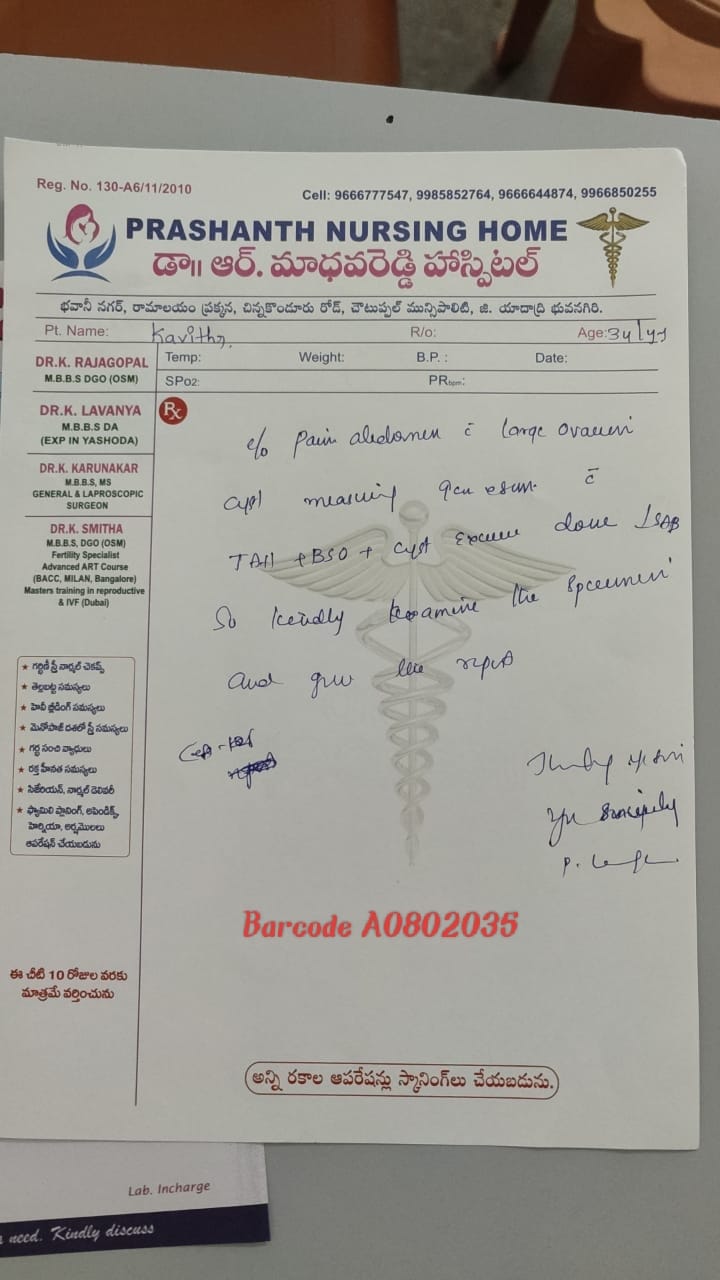 Reg. No. 130-A6/11/2010
Cell: 9666777547, 9985852764, 9666644874, 9966850255
PRASHANTH NURSING HOME
డా॥ ఆర్. మాధవరెడ్డి హాస్పిటల్
భవానీ నగర్, రామాలయం ప్రక్కన, చిన్నకొండూరు రోడ్, చౌటుప్పల్ మున్సిపాలిటి, జి. యాదాద్రి భువనగిరి.
Pt. Name: Kavitha R/o: Age: 34/yrs
Temp: Weight: B.P. : Date:
SPo2: PRbpm:
DR.K. RAJAGOPAL
M.B.B.S DGO (OSM)
DR.K. LAVANYA
M.B.B.S DA
(EXP IN YASHODA)
DR.K. KARUNAKAR
M.B.B.S, MS
GENERAL & LAPROSCOPIC
SURGEON
DR.K. SMITHA
M.B.B.S, DGO (OSM)
Fertility Specialist
Advanced ART Course
(BACC, MILAN, Bangalore)
Masters training in reproductive
& IVF (Dubai)
★ గర్భిణీ స్త్రీ నార్మల్ చెకప్స్
★ తెల్లబట్ట సమస్యలు
★ హెవీ బ్లీడింగ్ సమస్యలు
★ మెనోపాజ్ దశలో స్త్రీ సమస్యలు
★ గర్భ సంచి వ్యాధులు
★ రక్త హీనత సమస్యలు
★ సిజేరియన్, నార్మల్ డెలివరీ
★ ఫ్యామిలి ప్లానింగ్, అపెండిక్స్,
హెర్నియా, అర్షమొలలు
ఆపరేషన్ చేయబడును
ఈ చీటి 10 రోజుల వరకు
మాత్రమే వర్తించును
Rx
c/o Pain abdomen c̄ large ovarian
cyst measuring c̄
TAH + BSO + cyst done
So kindly examine the specimen
and give the report
Barcode A0802035
అన్ని రకాల ఆపరేషన్లు స్కానింగ్‌లు చేయబడును.
Lab. Incharge
need. Kindly discuss